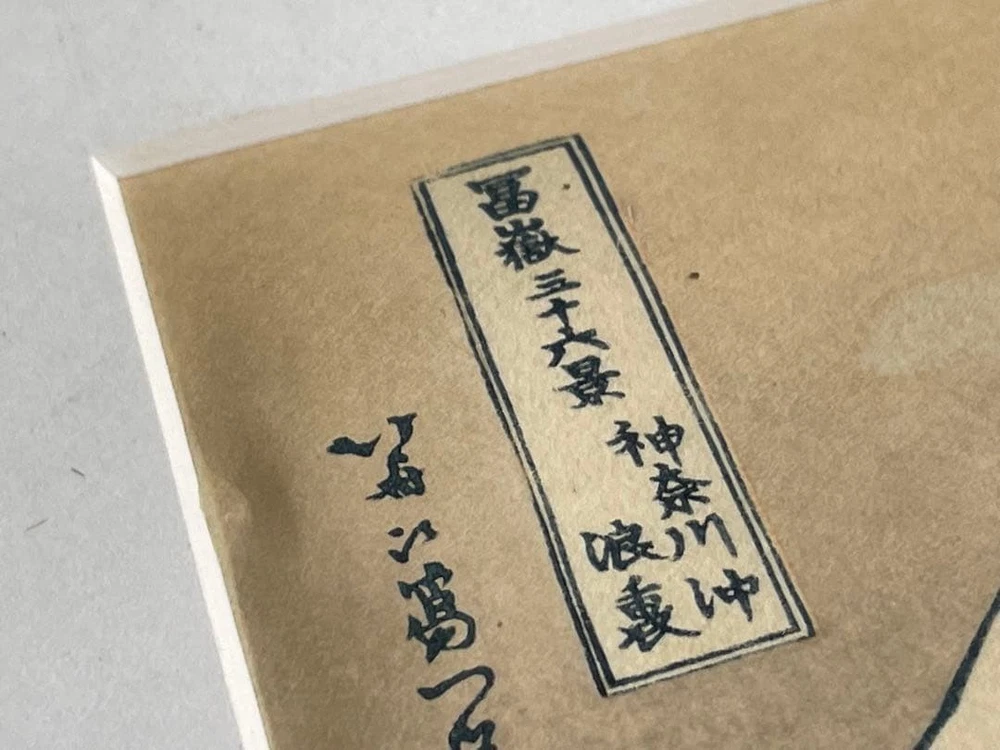 冨嶽三十六景
神奈川沖
浪裏
北斎改為一